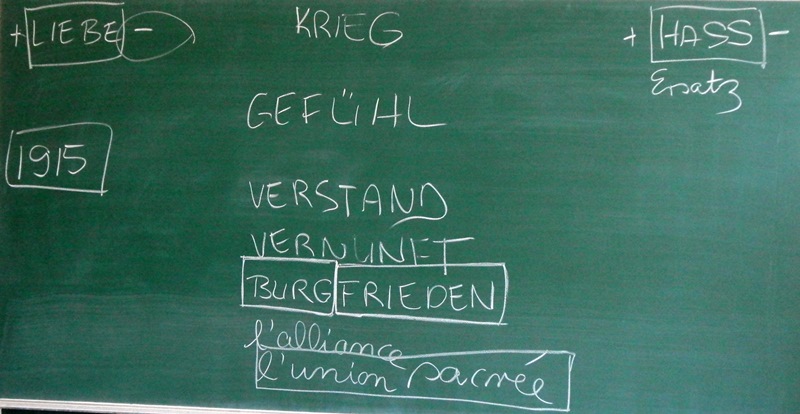 + LIEBE -
KRIEG
+ HASS -
Ersatz
GEFÜHL
1915
VERSTAND
VERNUNFT
BURGFRIEDEN
l'alliance
l'union sacrée